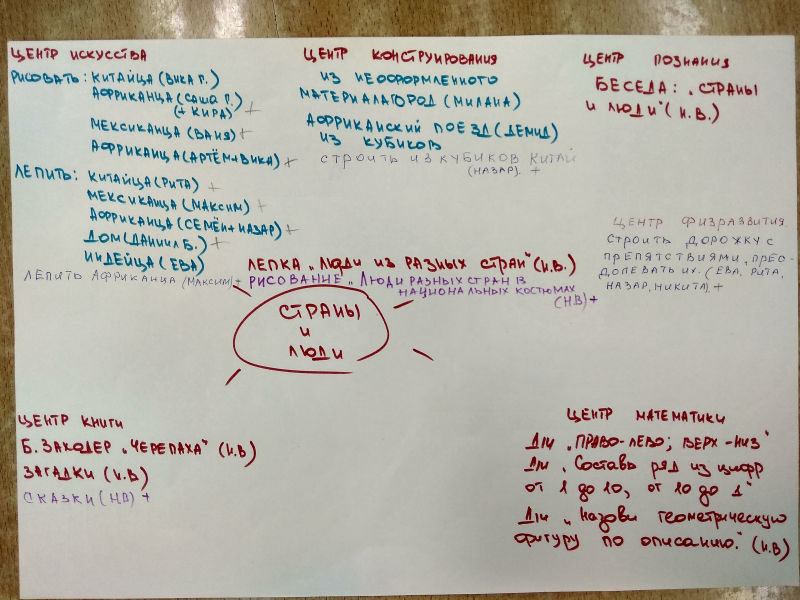 ЦЕНТР ИСКУССТВА
РИСОВАТЬ: КИТАЙЦА (ВИКА Г.)
АФРИКАНЦА (САША Г.) +
(+ КИРА)
МЕКСИКАНЦА (ВАНЯ) +
АФРИКАНЦА (АРТЁМ+ВИКА) +
ЛЕПИТЬ: КИТАЙЦА (РИТА) +
МЕКСИКАНЦА (МАКСИМ) +
АФРИКАНЦА (СЕМЁН+НАЗАР) +
ДОМ (ДАНИИЛ Б.) +
ИНДЕЙЦА (ЕВА)
ЛЕПИТЬ АФРИКАНЦА (МАКСИМ) +
ЦЕНТР КОНСТРУИРОВАНИЯ
ИЗ НЕОФОРМЛЕННОГО
МАТЕРИАЛА ГОРОД (МИЛАНА)
АФРИКАНСКИЙ ПОЕЗД (ДЕМИД)
ИЗ КУБИКОВ
СТРОИТЬ ИЗ КУБИКОВ КИТАЙ
(НАЗАР). +
ЦЕНТР ПОЗНАНИЯ
БЕСЕДА: „СТРАНЫ
И ЛЮДИ" (И.В.)
ЦЕНТР ФИЗРАЗВИТИЯ.
СТРОИТЬ ДОРОЖКУ С
ПРЕПЯТСТВИЯМИ, ПРЕО-
ДОЛЕВАТЬ ИХ. (ЕВА, РИТА,
НАЗАР, НИКИТА). +
ЛЕПКА „ЛЮДИ ИЗ РАЗНЫХ СТРАН" (И.В.)
РИСОВАНИЕ „ЛЮДИ РАЗНЫХ СТРАН В
НАЦИОНАЛЬНЫХ КОСТЮМАХ
(НВ) +
СТРАНЫ
И
ЛЮДИ
ЦЕНТР КНИГИ
Б. ЗАХОДЕР „ЧЕРЕПАХА" (И.В)
ЗАГАДКИ (И.В)
СКАЗКИ (НВ) +
ЦЕНТР МАТЕМАТИКИ
Д/И „ПРАВО-ЛЕВО; ВЕРХ-НИЗ"
Д/И „Составь ряд из цифр
от 1 до 10, от 10 до 1"
Д/И „Назови геометрическую
фигуру по описанию." (И.В)